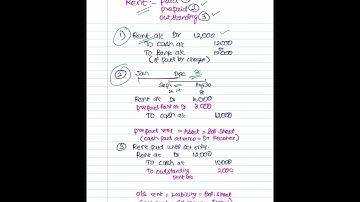 Rent:- paid ①
prepaid ②
outstanding ③
① Rent a/c Dr 12,000
To cash a/c 12,000
To Bank a/c 12,000
(if paid by cheque)
② Jan Dec
Sep
Rent a/c Dr
prepaid Rent a/c Dr 8,000
To cash a/c 12,000
prepaid rent = Asset = Bal. Sheet
(cash paid advance = Dr Receiver)
③ Rent paid until oct only.
Rent a/c Dr 12,000
To cash a/c 10,000
To outstanding 2,000
rent a/c
o/s rent = Liability = Bal. Sheet